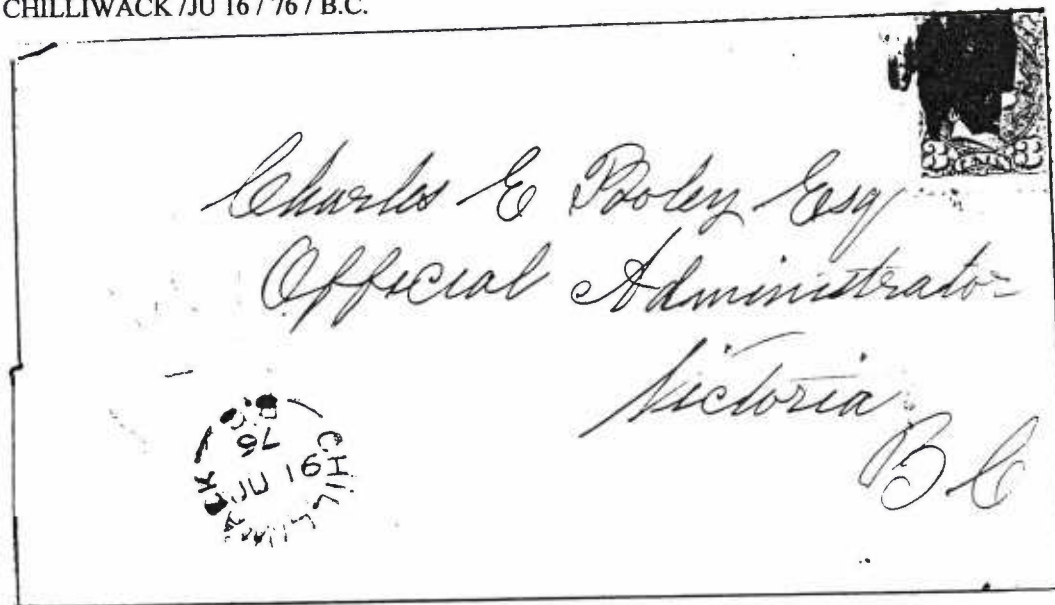 CHILLIWACK /JU 16 / 76 / B.C.
3 CENTS 3
Charles E Pooley Esq
Official Administrator
Victoria
B C
CHILLIWACK
JU 16
76
B.C.